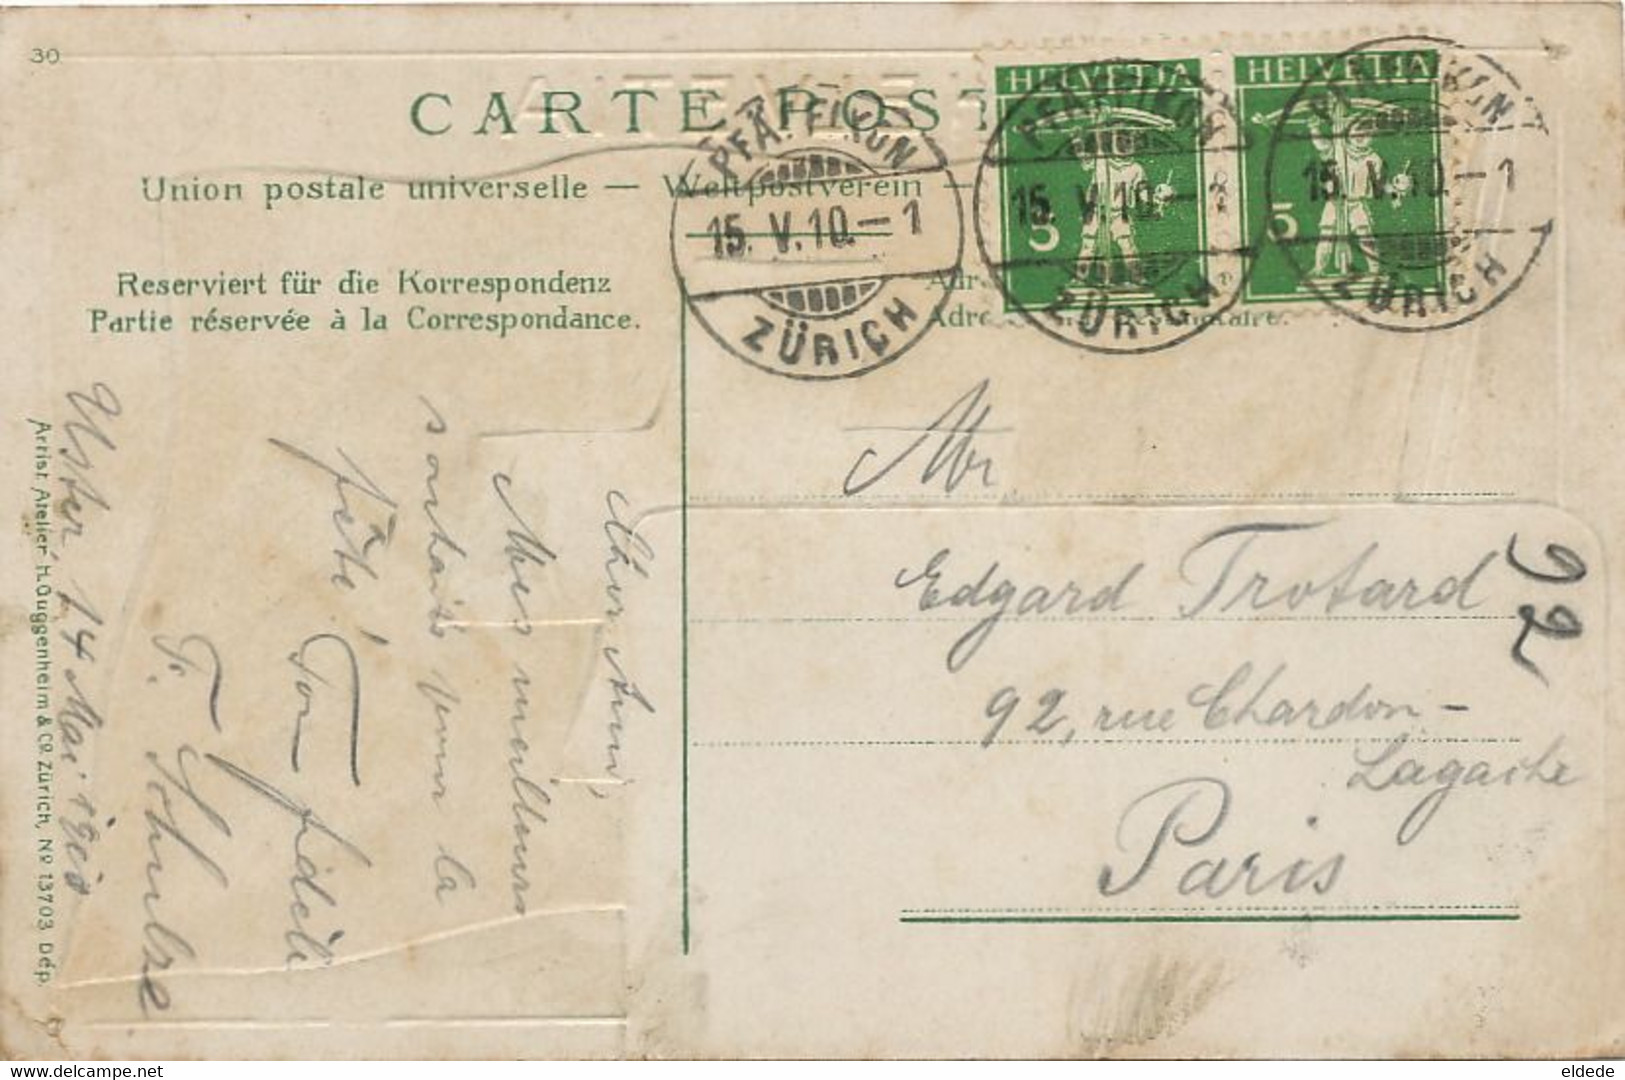 30
CARTE POST
Union postale universelle — Weltpostverein —
Reserviert für die Korrespondenz
Partie réservée à la Correspondance.
Adre
PFÄFFIKON
15. V. 10. – 1
ZÜRICH
HELVETIA
5
PFÄFFIKON
15. V. 10. – 1
ZÜRICH
HELVETIA
5
PFÄFFIKON
15. V. 10. – 1
ZÜRICH
Mr
Edgard Trotard
92, rue Chardon-
Lagache
Paris
92
Cher Ami,
Mes meilleurs
souhaits pour la
fête!
Ton fidèle
F. Schulze
Uster, 14 Mai 1910
Artist. Atelier H. Guggenheim & Co. Zürich, No 13703 Dép.
eldede